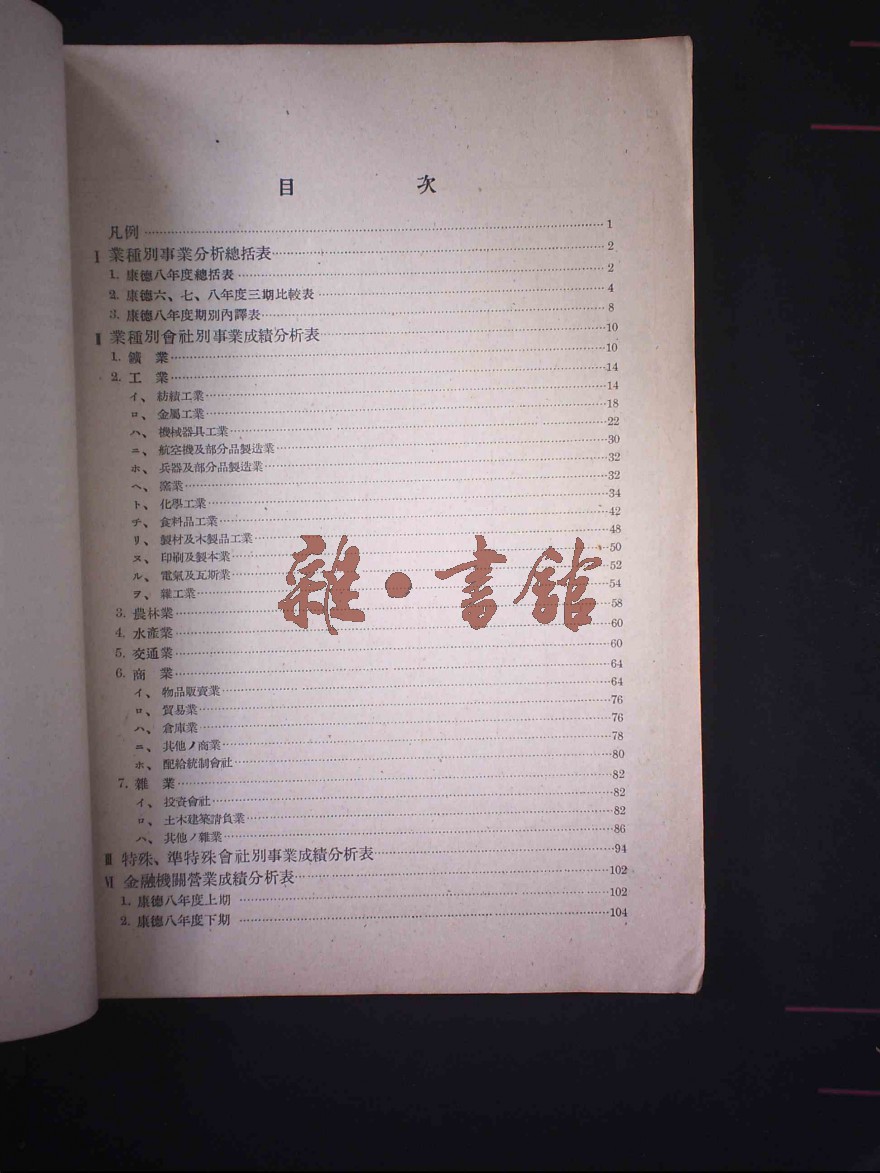 目 次
凡例 1
Ⅰ 業種別事業分析總括表 2
1. 康德八年度總括表 2
2. 康德六、七、八年度三期比較表 4
3. 康德八年度期別內譯表 8
Ⅱ 業種別會社別事業成績分析表 10
1. 鑛 業 10
2. 工 業 14
イ、 紡績工業 14
ロ、 金屬工業 18
ハ、 機械器具工業 22
ニ、 航空機及部分品製造業 30
ホ、 兵器及部分品製造業 32
ヘ、 窯業 32
ト、 化學工業 34
チ、 食料品工業 42
リ、 製材及木製品工業 48
ヌ、 印刷及製本業 50
ル、 電氣及瓦斯業 52
ヲ、 雜工業 54
3. 農林業 58
4. 水產業 60
5. 交通業 60
6. 商 業 64
イ、 物品販賣業 64
ロ、 貿易業 76
ハ、 倉庫業 76
ニ、 其他ノ商業 78
ホ、 配給統制會社 80
7. 雜 業 82
イ、 投資會社 82
ロ、 土木建築請負業 82
ハ、 其他ノ雜業 86
Ⅲ 特殊、準特殊會社別事業成績分析表 94
Ⅵ 金融機關營業成績分析表 102
1. 康德八年度上期 102
2. 康德八年度下期 104
雜·書館